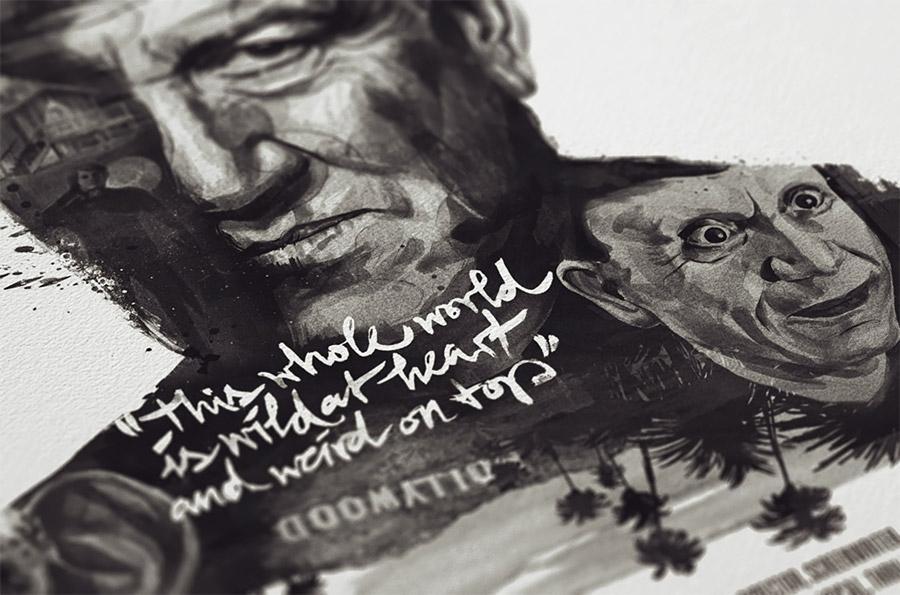 "this whole world
is wild at heart
and weird on top"
HOLLYWOOD